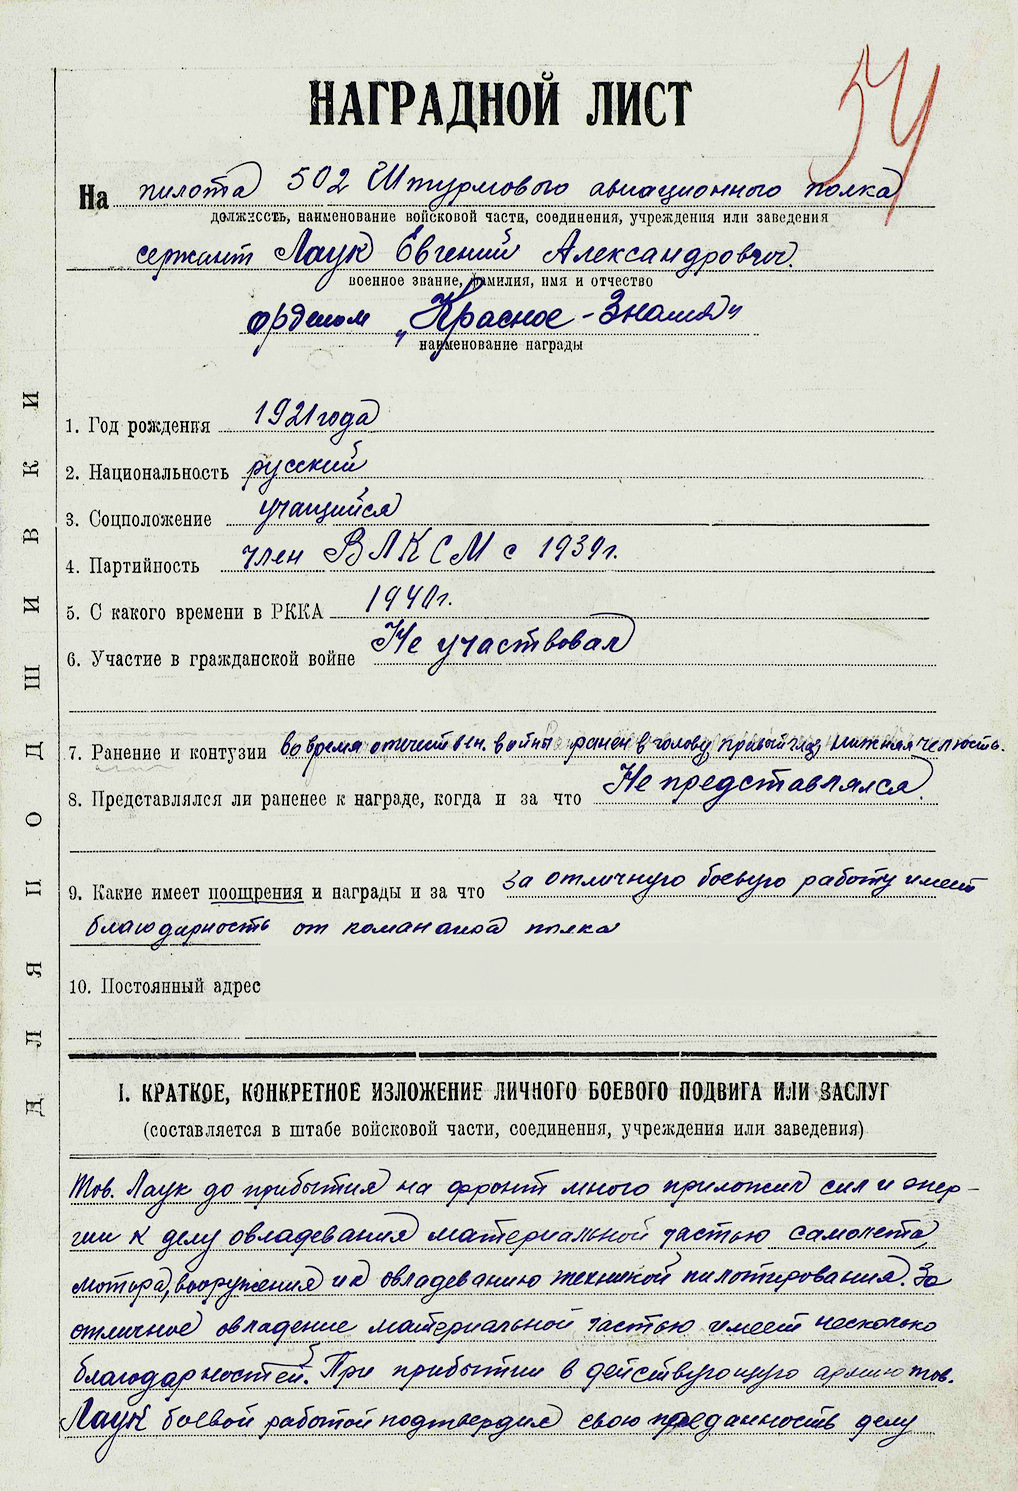 54
НАГРАДНОЙ ЛИСТ
На пилота 502 Штурмового авиационного полка
должность, наименование войсковой части, соединения, учреждения или заведения
сержант Лаук Евгений Александрович.
военное звание, фамилия, имя и отчество
орденом „Красное-Знамя"
наименование награды
1. Год рождения 1921 года
2. Национальность русский
3. Соцположение учащийся
4. Партийность член ВЛКСМ с 1939г.
5. С какого времени в РККА 1940г.
6. Участие в гражданской войне Не участвовал
7. Ранение и контузии во время отечествен. войны ранен в голову, правый глаз, нижняя челюсть.
8. Представлялся ли раненее к награде, когда и за что Не представлялся.
9. Какие имеет поощрения и награды и за что За отличную боевую работу имеет
благодарность от командира полка
10. Постоянный адрес
I. КРАТКОЕ, КОНКРЕТНОЕ ИЗЛОЖЕНИЕ ЛИЧНОГО БОЕВОГО ПОДВИГА ИЛИ ЗАСЛУГ
(составляется в штабе войсковой части, соединения, учреждения или заведения)
Тов. Лаук до прибытия на фронт много приложил сил и энер-
гии к делу овладевания материальной частью самолета,
мотора, вооружения и к овладеванию техникой пилотирования. За
отличное овладение материальной частью имеет несколько
благодарностей. При прибытии в действующую армию тов.
Лаук боевой работой подтвердил свою преданность делу
ДЛЯ ПОДШИВКИ